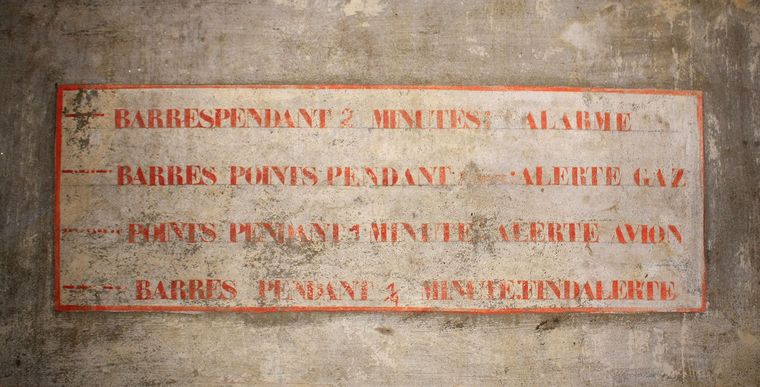 BARRES PENDANT 2 MINUTES: ALARME
BARRES POINTS PENDANT ALERTE GAZ
POINTS PENDANT 1 MINUTE ALERTE AVION
BARRES PENDANT MINUTE: FIN DALERTE